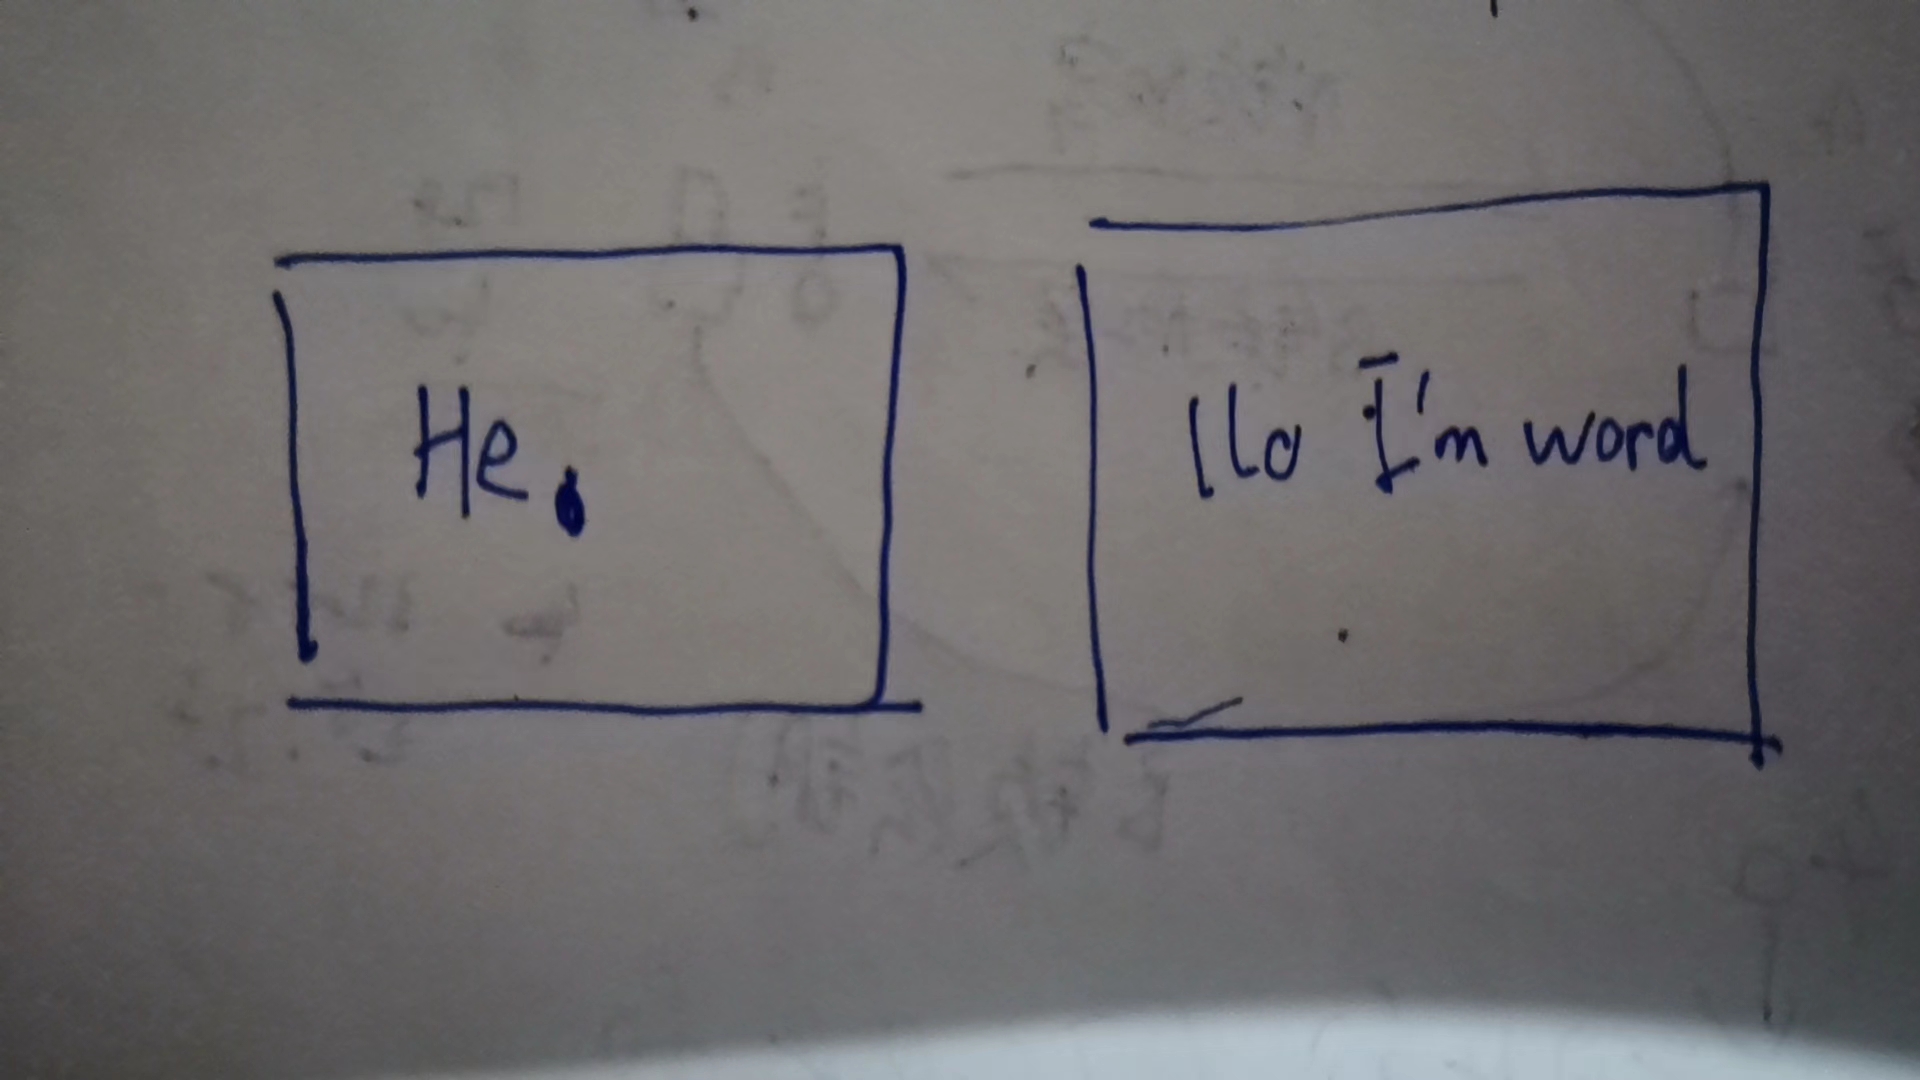 He.
llo I'm word